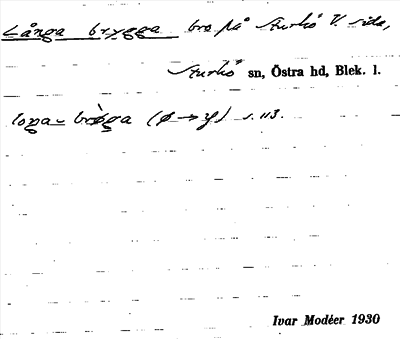 Långa brygga bro på Sturkö V. sida,
Sturkö sn, Östra hd, Blek. l.
brøga (ø → y) s. 113.
Ivar Modéer 1930